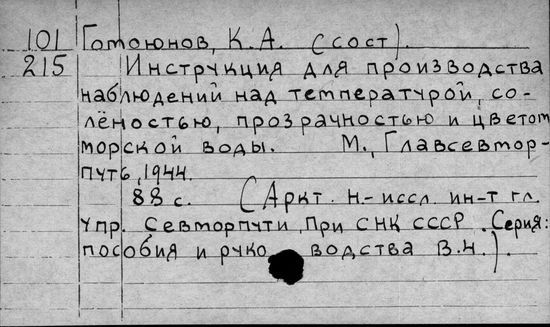 101 Готоюнов, К.А. (сост).
215 Инструкция для производства
наблюдений над температурой, со-
лёностью, прозрачностью и цветом
морской воды. М., Главсевмор-
путь, 1944.
88 с. (Аркт. н-иссл. ин-т гл.
упр. Севморпути при СНК СССР. Серия:
пособия и руко водства В.Н.).